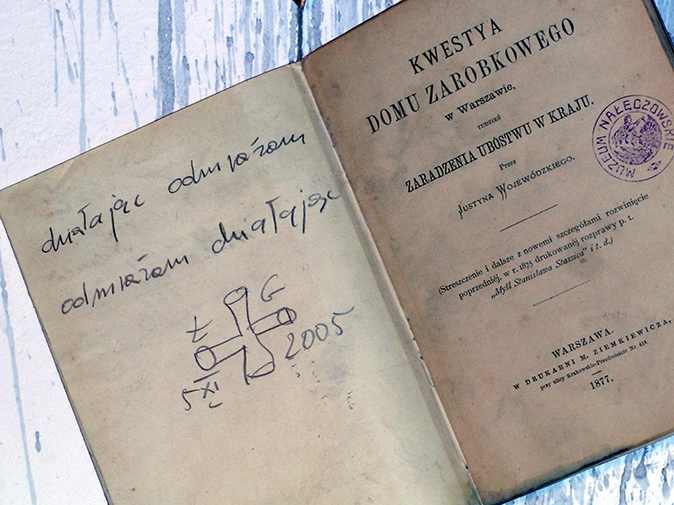 działając odmrażam
odmrażam działając
Ł G
2005
5 XI
KWESTYA
DOMU ZAROBKOWEGO
w Warszawie,
ZARADZENIA UBÓSTWU W KRAJU.
Przez
Justyna Wojewódzkiego.
(Streszczenie i dalsze z nowemi szczegółami rozwinięcie
poprzedniéj, w r. 1875 drukowanéj rozprawy p. t.
„Myśl Stanisława Staszica" i t. d.)
WARSZAWA.
W DRUKARNI M. ZIEMKIEWICZA,
przy ulicy Krakowskie-Przedmieście Nr. 415
1877.
MUZEUM NAŁĘCZOWSKIE